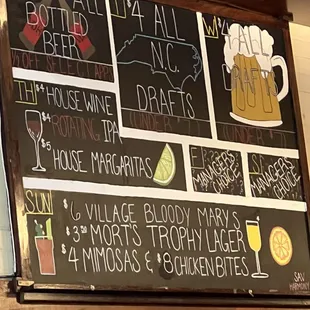 ALL
BOTTLED
BEER
$4 ALL
N.C.
DRAFTS
W
$4 ALL
DRAFTS
TH
$4 HOUSE WINE
$4 ROTATING IPA
$5 HOUSE MARGARITAS
F
MANAGER'S
CHOICE
MANAGER'S
CHOICE
SUN
$6 VILLAGE BLOODY MARYS
MORT'S TROPHY LAGER
$4 MIMOSAS & $8 CHICKEN BITES
SAV
HARMONY